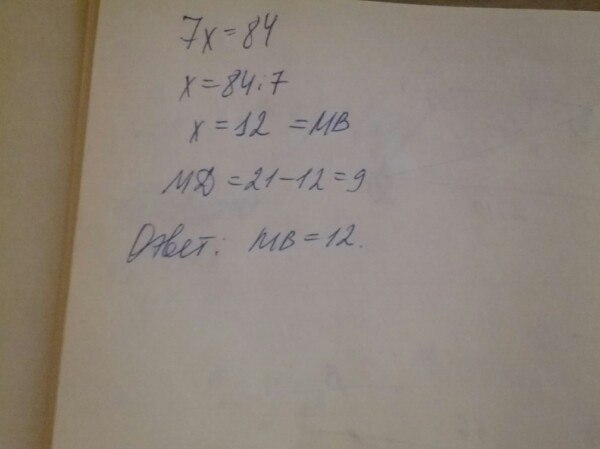 7x=84
x=84:7
x=12 =MB
МД=21-12=9
Ответ: MB=12.